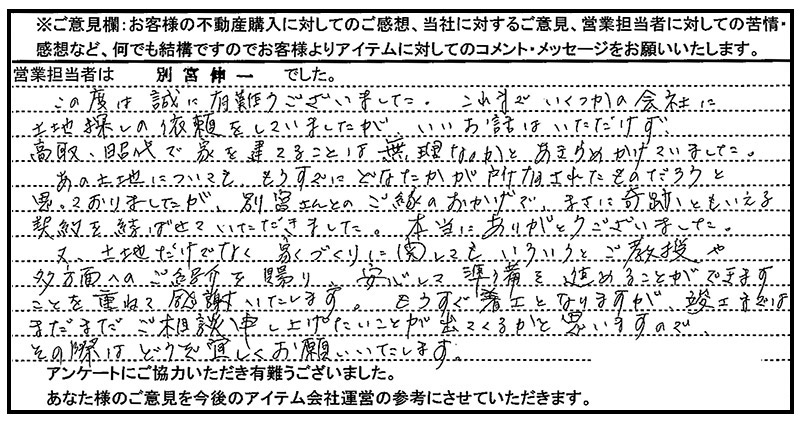 ※ご意見欄:お客様の不動産購入に対してのご感想、当社に対するご意見、営業担当者に対しての苦情・
感想など、何でも結構ですのでお客様よりアイテムに対してのコメント・メッセージをお願いいたします。
営業担当者は 別宮伸一 でした。
この度は誠に有難うございました。これまでいくつかの会社に
土地探しの依頼をしていましたが、いいお話はいただけず、
高取、昭代で家を建てることは無理なのかとあきらめかけていました。
あの土地についても、もうすでにどなたかが所有されたものだろうと
思っておりましたが、別宮さんとのご縁のおかげで、まさに奇跡ともいえる
契約を結ばせていただきました。本当にありがとうございました。
又、土地だけでなく家づくりに関してもいろいろとご教授や
多方面へのご紹介を賜り、安心して準備を進めることができます
ことを重ねて感謝いたします。もうすぐ着工となりますが、竣工までは
まだまだご相談申し上げたいことが出てくるかと思いますので、
その際はどうぞ宜しくお願いいたします。
アンケートにご協力いただき有難うございました。
あなた様のご意見を今後のアイテム会社運営の参考にさせていただきます。